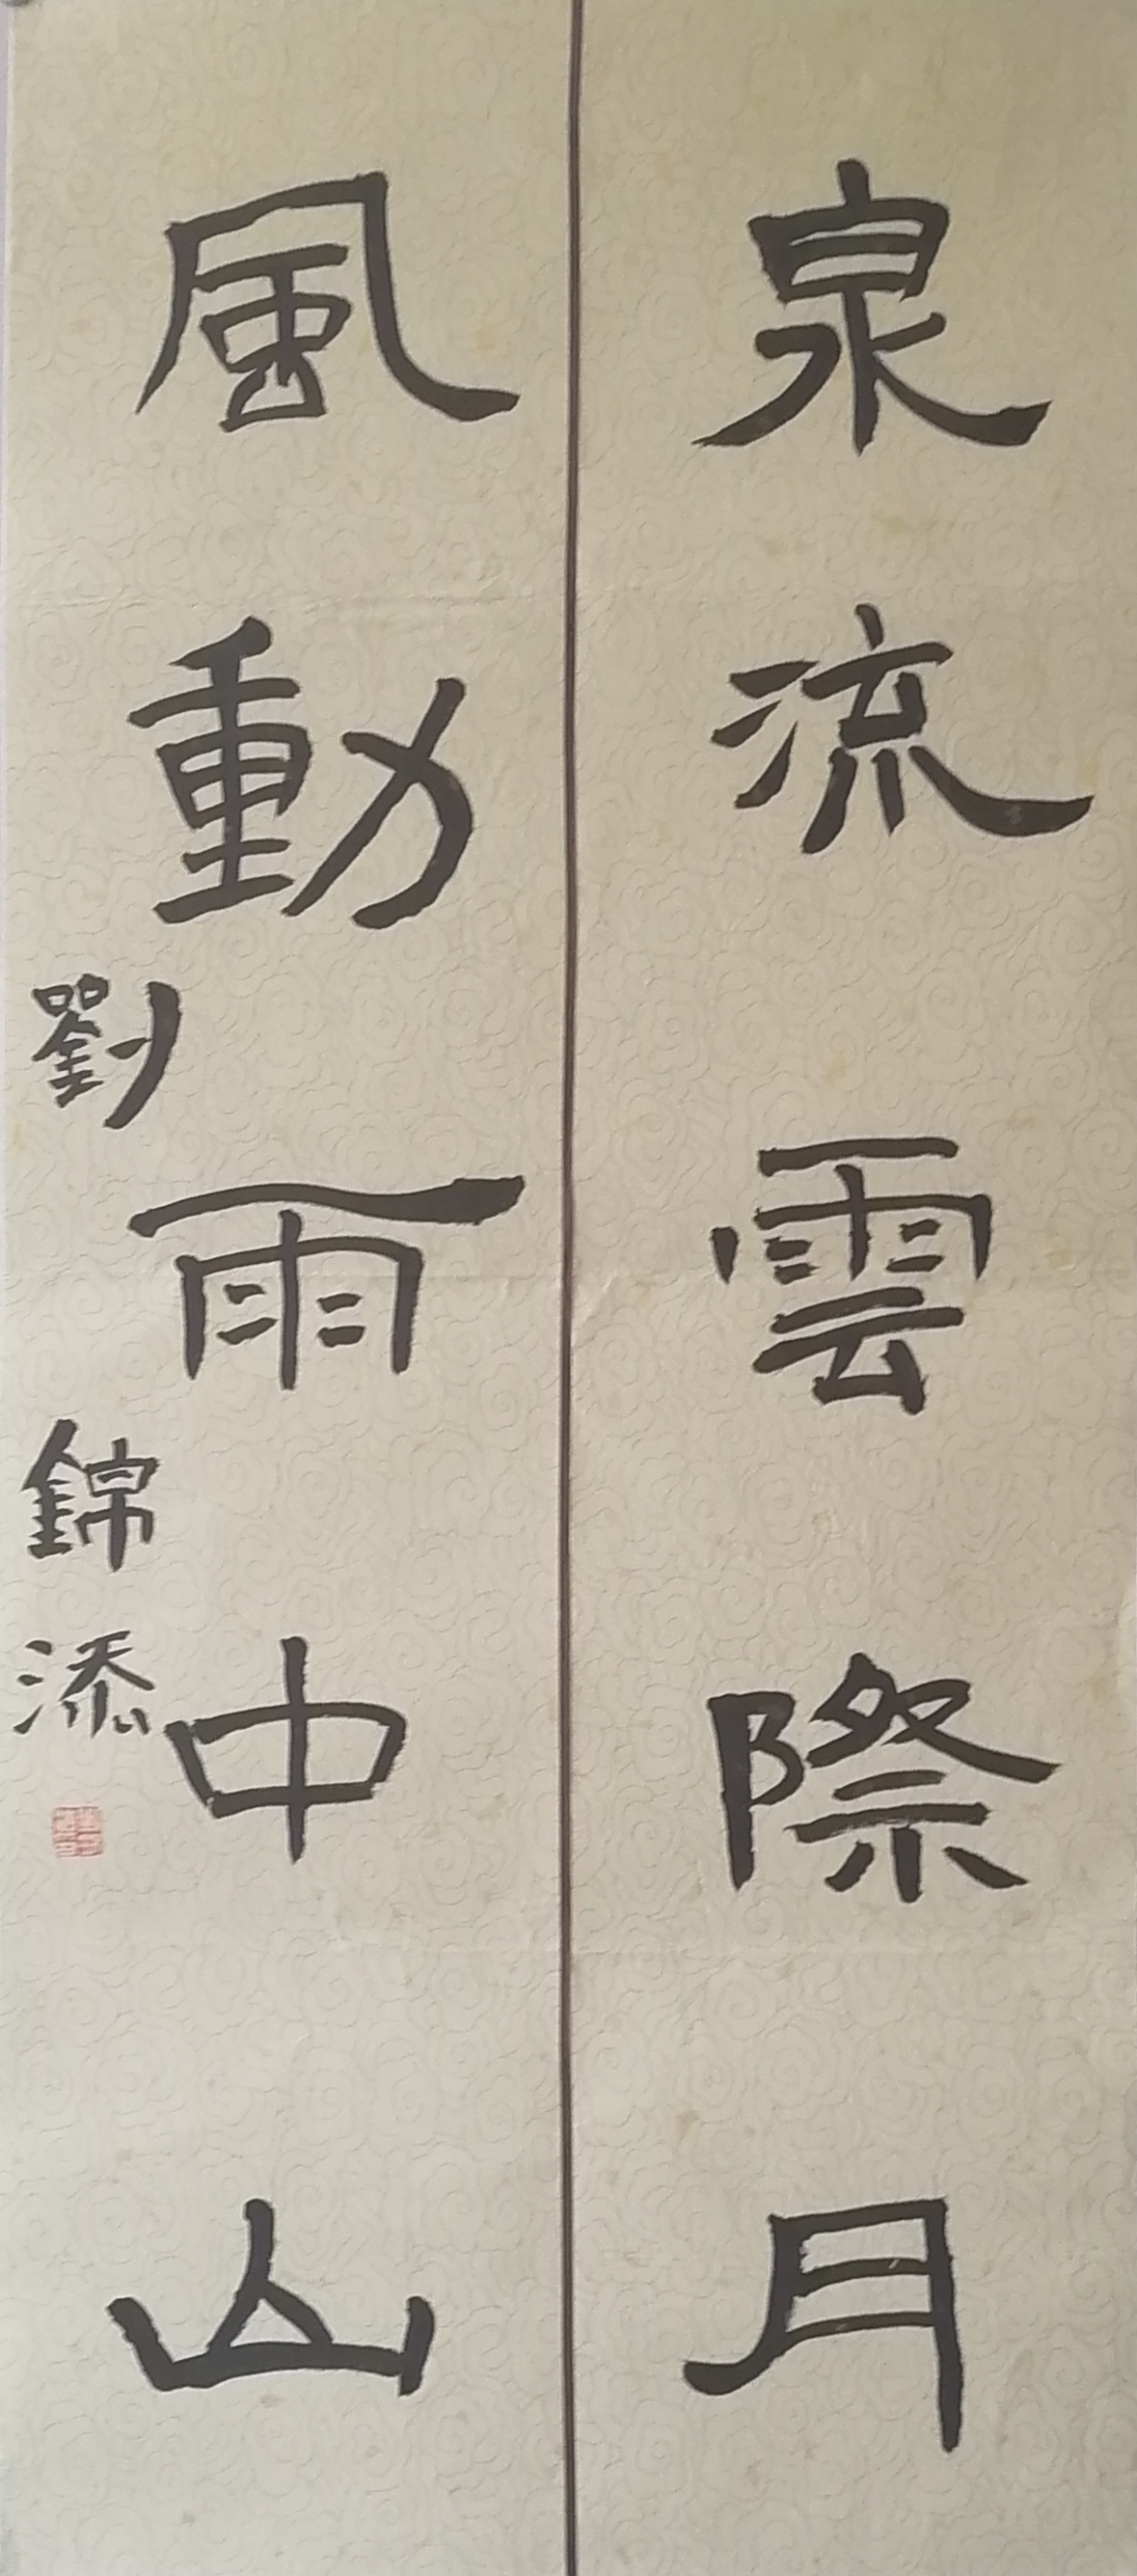 泉流雲際月
風動雨中山
劉錦添